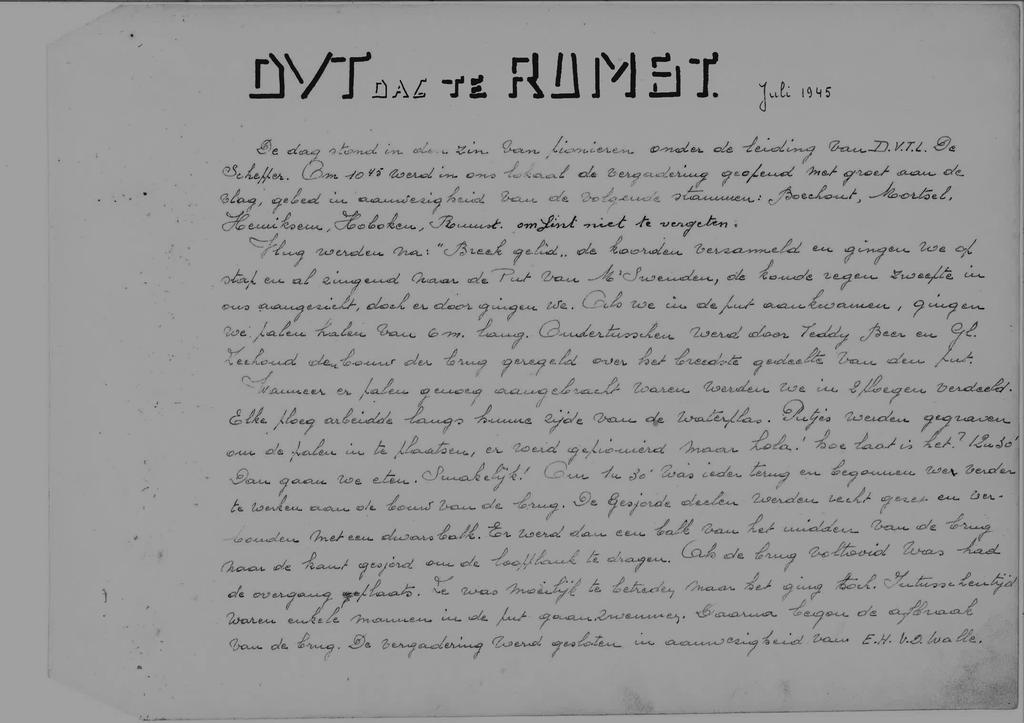 DVT DAG TE RUMST. Juli 1945
De dag stond in den zin van pionieren onder de leiding van D.V.T.L. De
Schepper. Om 10 45 werd in ons lokaal de vergadering geopend met groet aan de
vlag, gebed in aanwezigheid van de volgende stammen: Boechout, Mortsel,
Hemiksem, Hoboken, Rumst. om Lint niet te vergeten.
Vlug werden na: "Breek gelid„ de koorden verzameld en gingen we op
stap en al zingend naar de Put van Mr Swenden, de koude regen zweepte in
ons aangezicht, doch er door gingen we. Als we in de put aankwamen, gingen
we palen halen van 6 m. lang. Ondertusschen werd door Teddy Beer en Gl.
Zeehond den bouw der brug geregeld over het breedste gedeelte van den put.
Wanneer er palen genoeg aangebracht waren werden we in 2 ploegen verdeeld.
Elke ploeg arbeidde langs hunne zijde van de waterplas. Putjes werden gegraven
om de palen in te plaatsen, er werd gepionierd maar hola! hoe laat is het? 12u30'
Dan gaan we eten. Smakelijk! Om 1u 30' was ieder terug en begonnen wer verder
te werken aan de bouw van de brug. De Gesjorde deelen werden recht gezet en ver-
bonden met een dwarsbalk. Er werd dan een balk van het midden van de brug
naar de kant gesjord om de loopplank te dragen. Als de brug voltooid was had
de overgang geplaats. Ze was moeilijk te betreden maar het ging toch. Intusschentijd
waren enkele mannen in de put gaan zwemmen. Daarna begon de afbraak
van de brug. De vergadering werd gesloten in aanwezigheid van E.H. V.D. Walle.